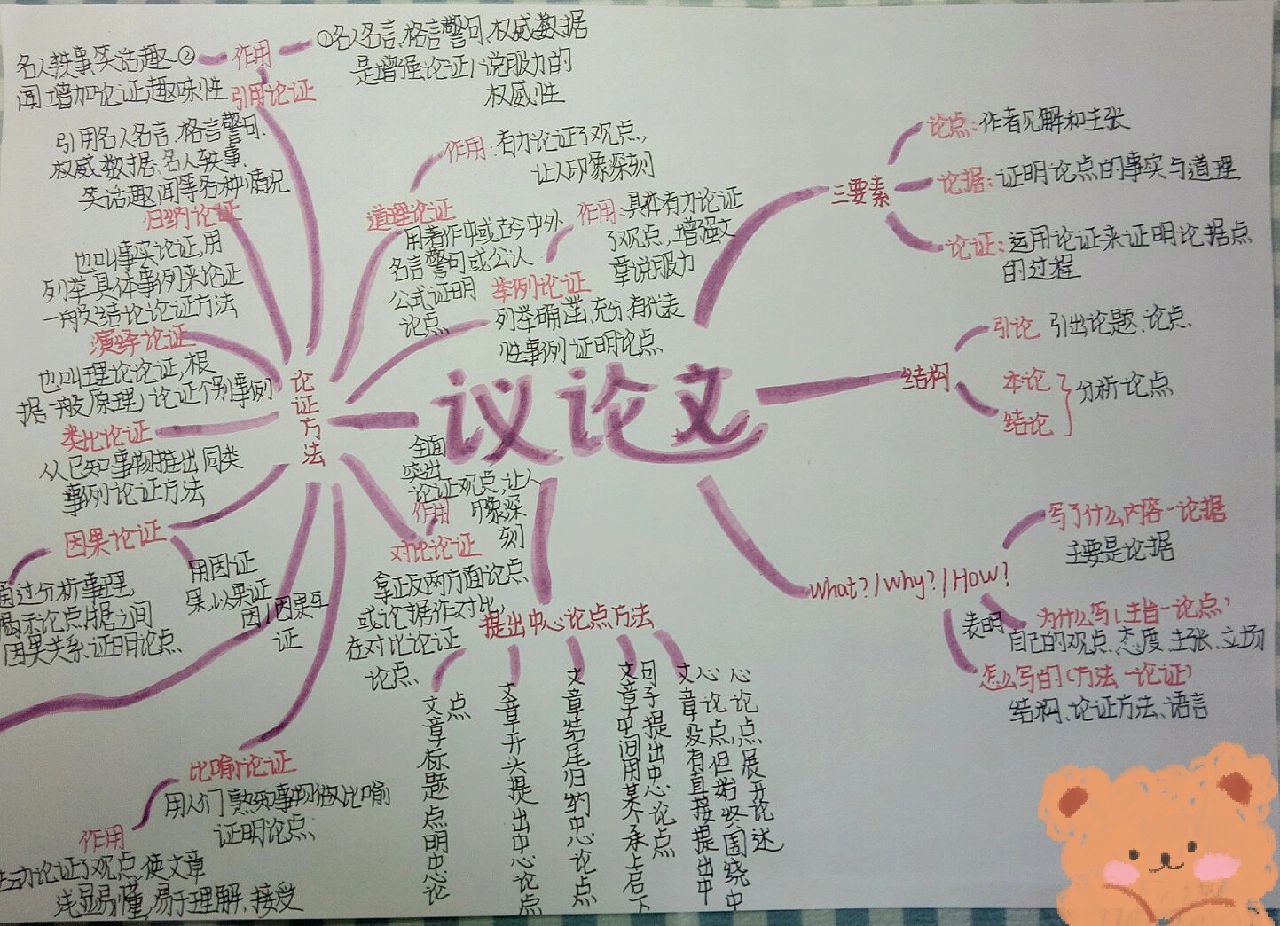 议论文
论证方法
作用
①名人名言、格言警句、权威数据
是增强论证、说服力的
权威性
名人轶事笑话趣②
闻增加论证趣味性
引用论证
引用名人名言、格言警句、
权威数据、名人轶事、
笑话趣闻等各种情况
归纳论证
也叫事实论证,用
列举具体事例来论证
一般结论论证方法
演绎论证
也叫理论论证,根
据一般原理/论证个别事例
类比论证
从已知事物推出同类
事例论证方法
因果论证
通过分析事理
揭示论点、据之间
因果关系、证明论点
用因证
果、以果证
因、因果互
证
比喻论证
用人们熟知事物做比喻
证明论点、
作用
生动论证了观点,使文章
浅显易懂,易于理解、接受
道理论证
用著作中或古今中外
名言警句或公认
公式证明
论点、
作用:有力论证了观点,
让人印象深刻
举例论证
列举确凿、充分、有代表
性事例证明论点、
作用:具体有力论证
了观点,增强文
章说服力
对比论证
拿正反两方面论点
或论据作对比,
在对比论证
论点、
作用
全面
突出
论证观点,让人
印象深
刻
提出中心论点方法
文章标题点明中心论
点
文章开头提出中心论点
文章结尾归纳中心论点
文章中间用某个承上启下
句子提出中心论点
文章没有直接提出中
心论点,但始终围绕中
心论点展开论述
三要素
论点:作者见解和主张
论据:证明论点的事实与道理
论证:运用论证来证明论据点
的过程
结构
引论 引出论题、论点、
本论
结论
分析论点
What?/Why?/How?
写了什么内容-论据
主要是论据
表明
为什么写(主旨-论点)
自己的观点、态度、主张、立场
怎么写的(方法-论证)
结构、论证方法、语言